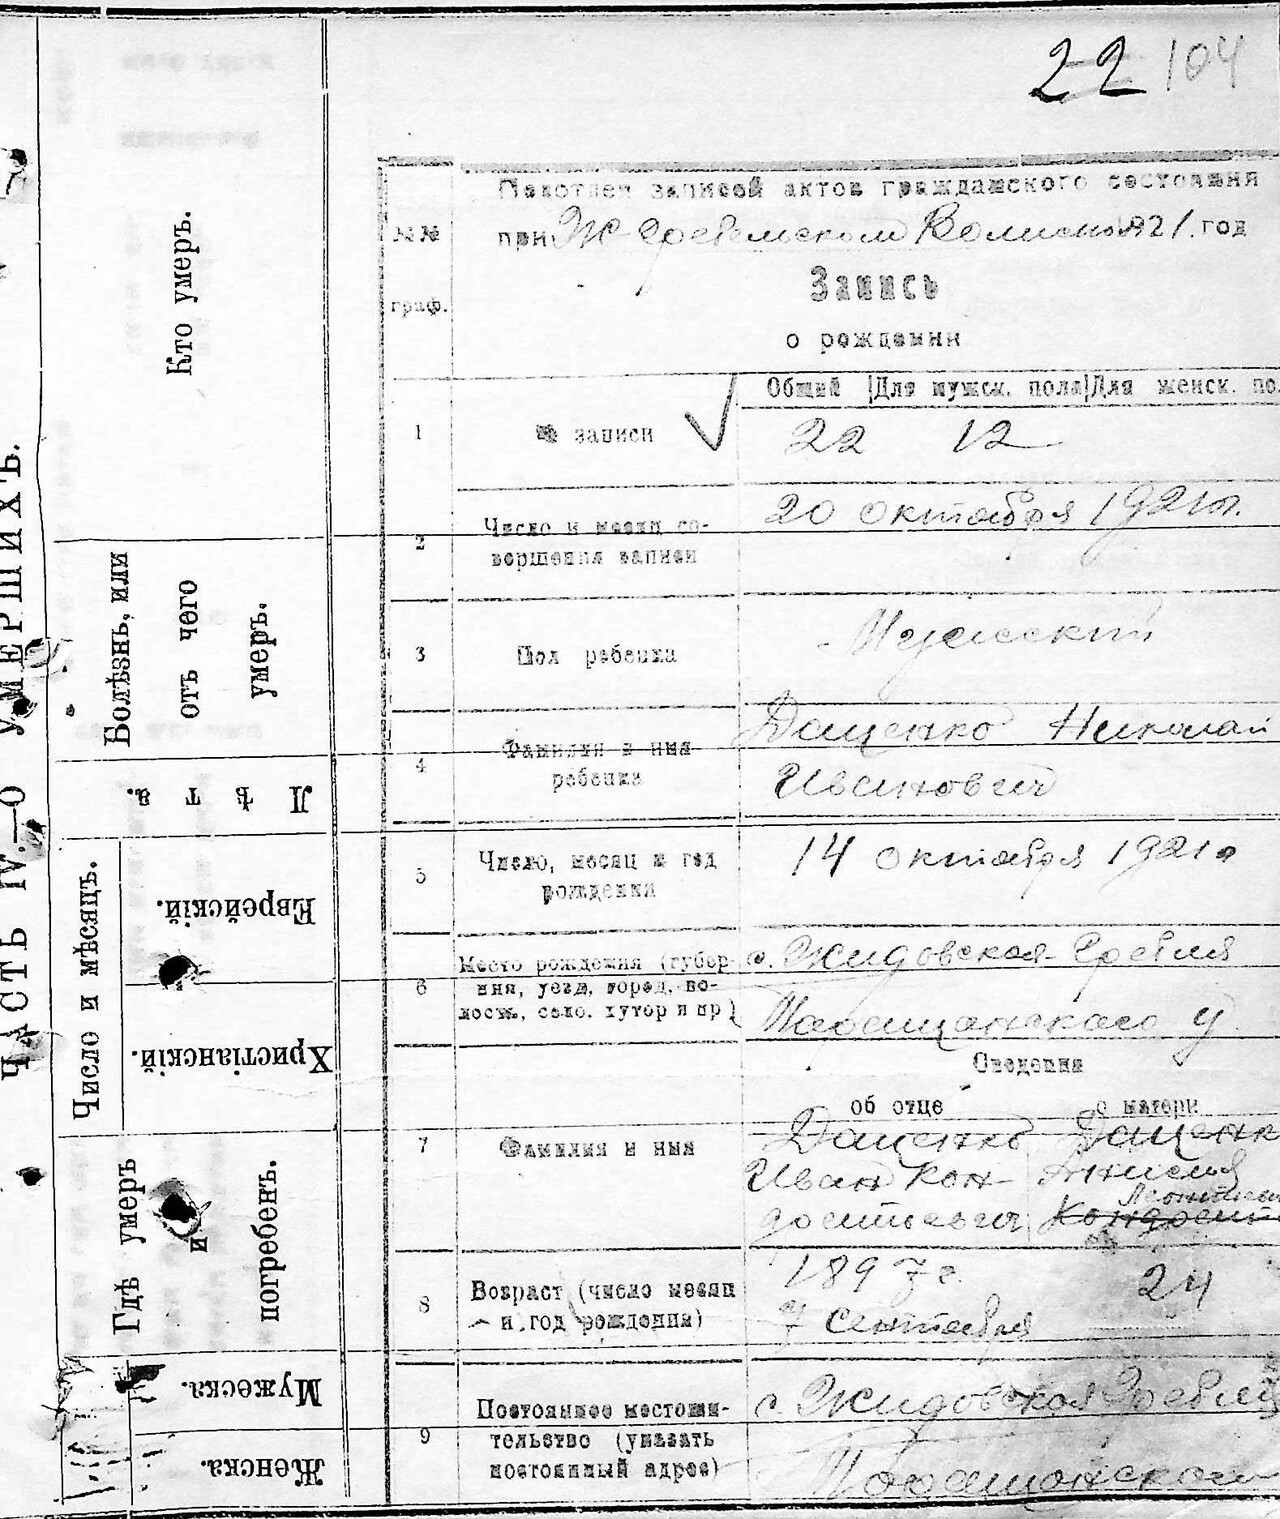 22 104
ЧАСТЬ IV.—О УМЕРШИХЪ.
Кто умеръ.
Болѣзнь, или
отъ чего
умеръ.
Лѣта.
Число и мѣсяцъ.
Еврейскій.
Христіанскій.
Гдѣ умеръ
и
погребенъ.
Мужеска.
Женска.
№№
граф.
Подотдел записей актов гражданского состояния
при 1921 год
Запись
о рождении
Общий Для мужск. пола Для женск. по
1 № записи 22 12
2 Число и месяц со-
вершения записи
20 октября 1921 г.
3 Пол ребенка Мужеский
4 Фамилия и имя
ребенка
Даценко Николай
Иванович
5 Число, месяц и год
рождения
14 октября 1921 г
6 Место рождения (губер-
ния, уезд, город, во-
лость, село, хутор и пр)
с. Жидовская-Гребля
Таращанского у
Сведения
об отце о матери
7 Фамилия и имя
Даценко
Иван Кон-
Даценк
8 Возраст (число месяц
и год рождения)
1897 г.
7 сентября
24
9 Постоянное местожи-
тельство (указать
постоянный адрес)
с. Жидовская Гребля